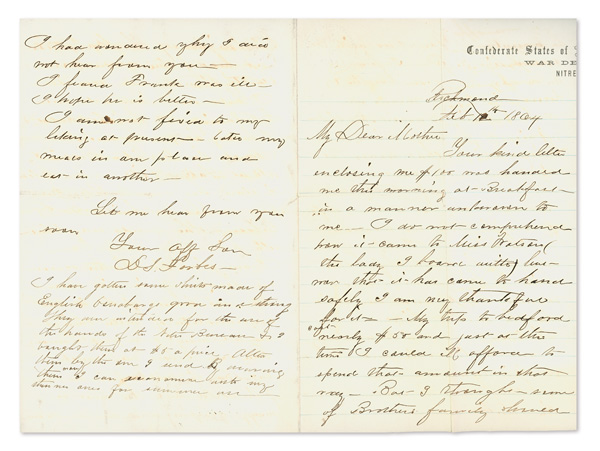 Confederate States of
WAR DE
NITRE
Richmond
Feb 12th 1864
My Dear Mother
Your kind letter
enclosing me $100 was handed
me this morning at Breakfast -
in a manner unknown to
me - I do not comprehend
how it came to Miss Watson
(the lady I board with)
that it has come to hand
safely I am very thankful
for it - My trip to Bedford
cost nearly $50 and just at this
time I could ill afford to
spend that amount in that
way - But I thought some
of Brothers family should
I had wondered why I did
not hear from you -
I feared Frank was ill -
I hope he is better -
I am not fixed to my
liking at present - take my
meals in one place and
eat in another -
Let me hear from you
soon
Your aff Son
D. S. Forbes -
I have gotten some shirts made of
English good and strong
They are intended for the use of
the hands of the Nitre Bureau & I
bought them at $5 a piece. Alter
them by the one I send & by wearing
them now I can economise with my
thinner ones for summer use -